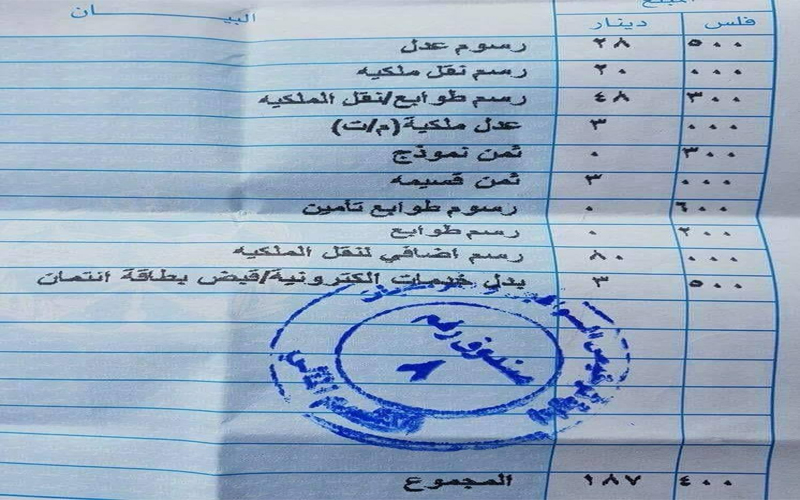 المبلغ
فلس دينار البيـــــــــان
٥٠٠ ٢٨ رسوم عدل
٠٠٠ ٢٠ رسم نقل ملكيه
٣٠٠ ٤٨ رسم طوابع/نقل الملكيه
٠٠٠ ٣ عدل ملكية(م/ت)
٣٠٠ ٠ ثمن نموذج
٠٠٠ ٣ ثمن قسيمه
٦٠٠ ٠ رسوم طوابع تأمين
٢٠٠ ٠ رسم طوابع
٠٠٠ ٨٠ رسم اضافي لنقل الملكيه
٥٠٠ ٣ بدل خدمات الكترونية/قبض بطاقة ائتمان
صندوق رقم
٨
٤٠٠ ١٨٧ المجموع